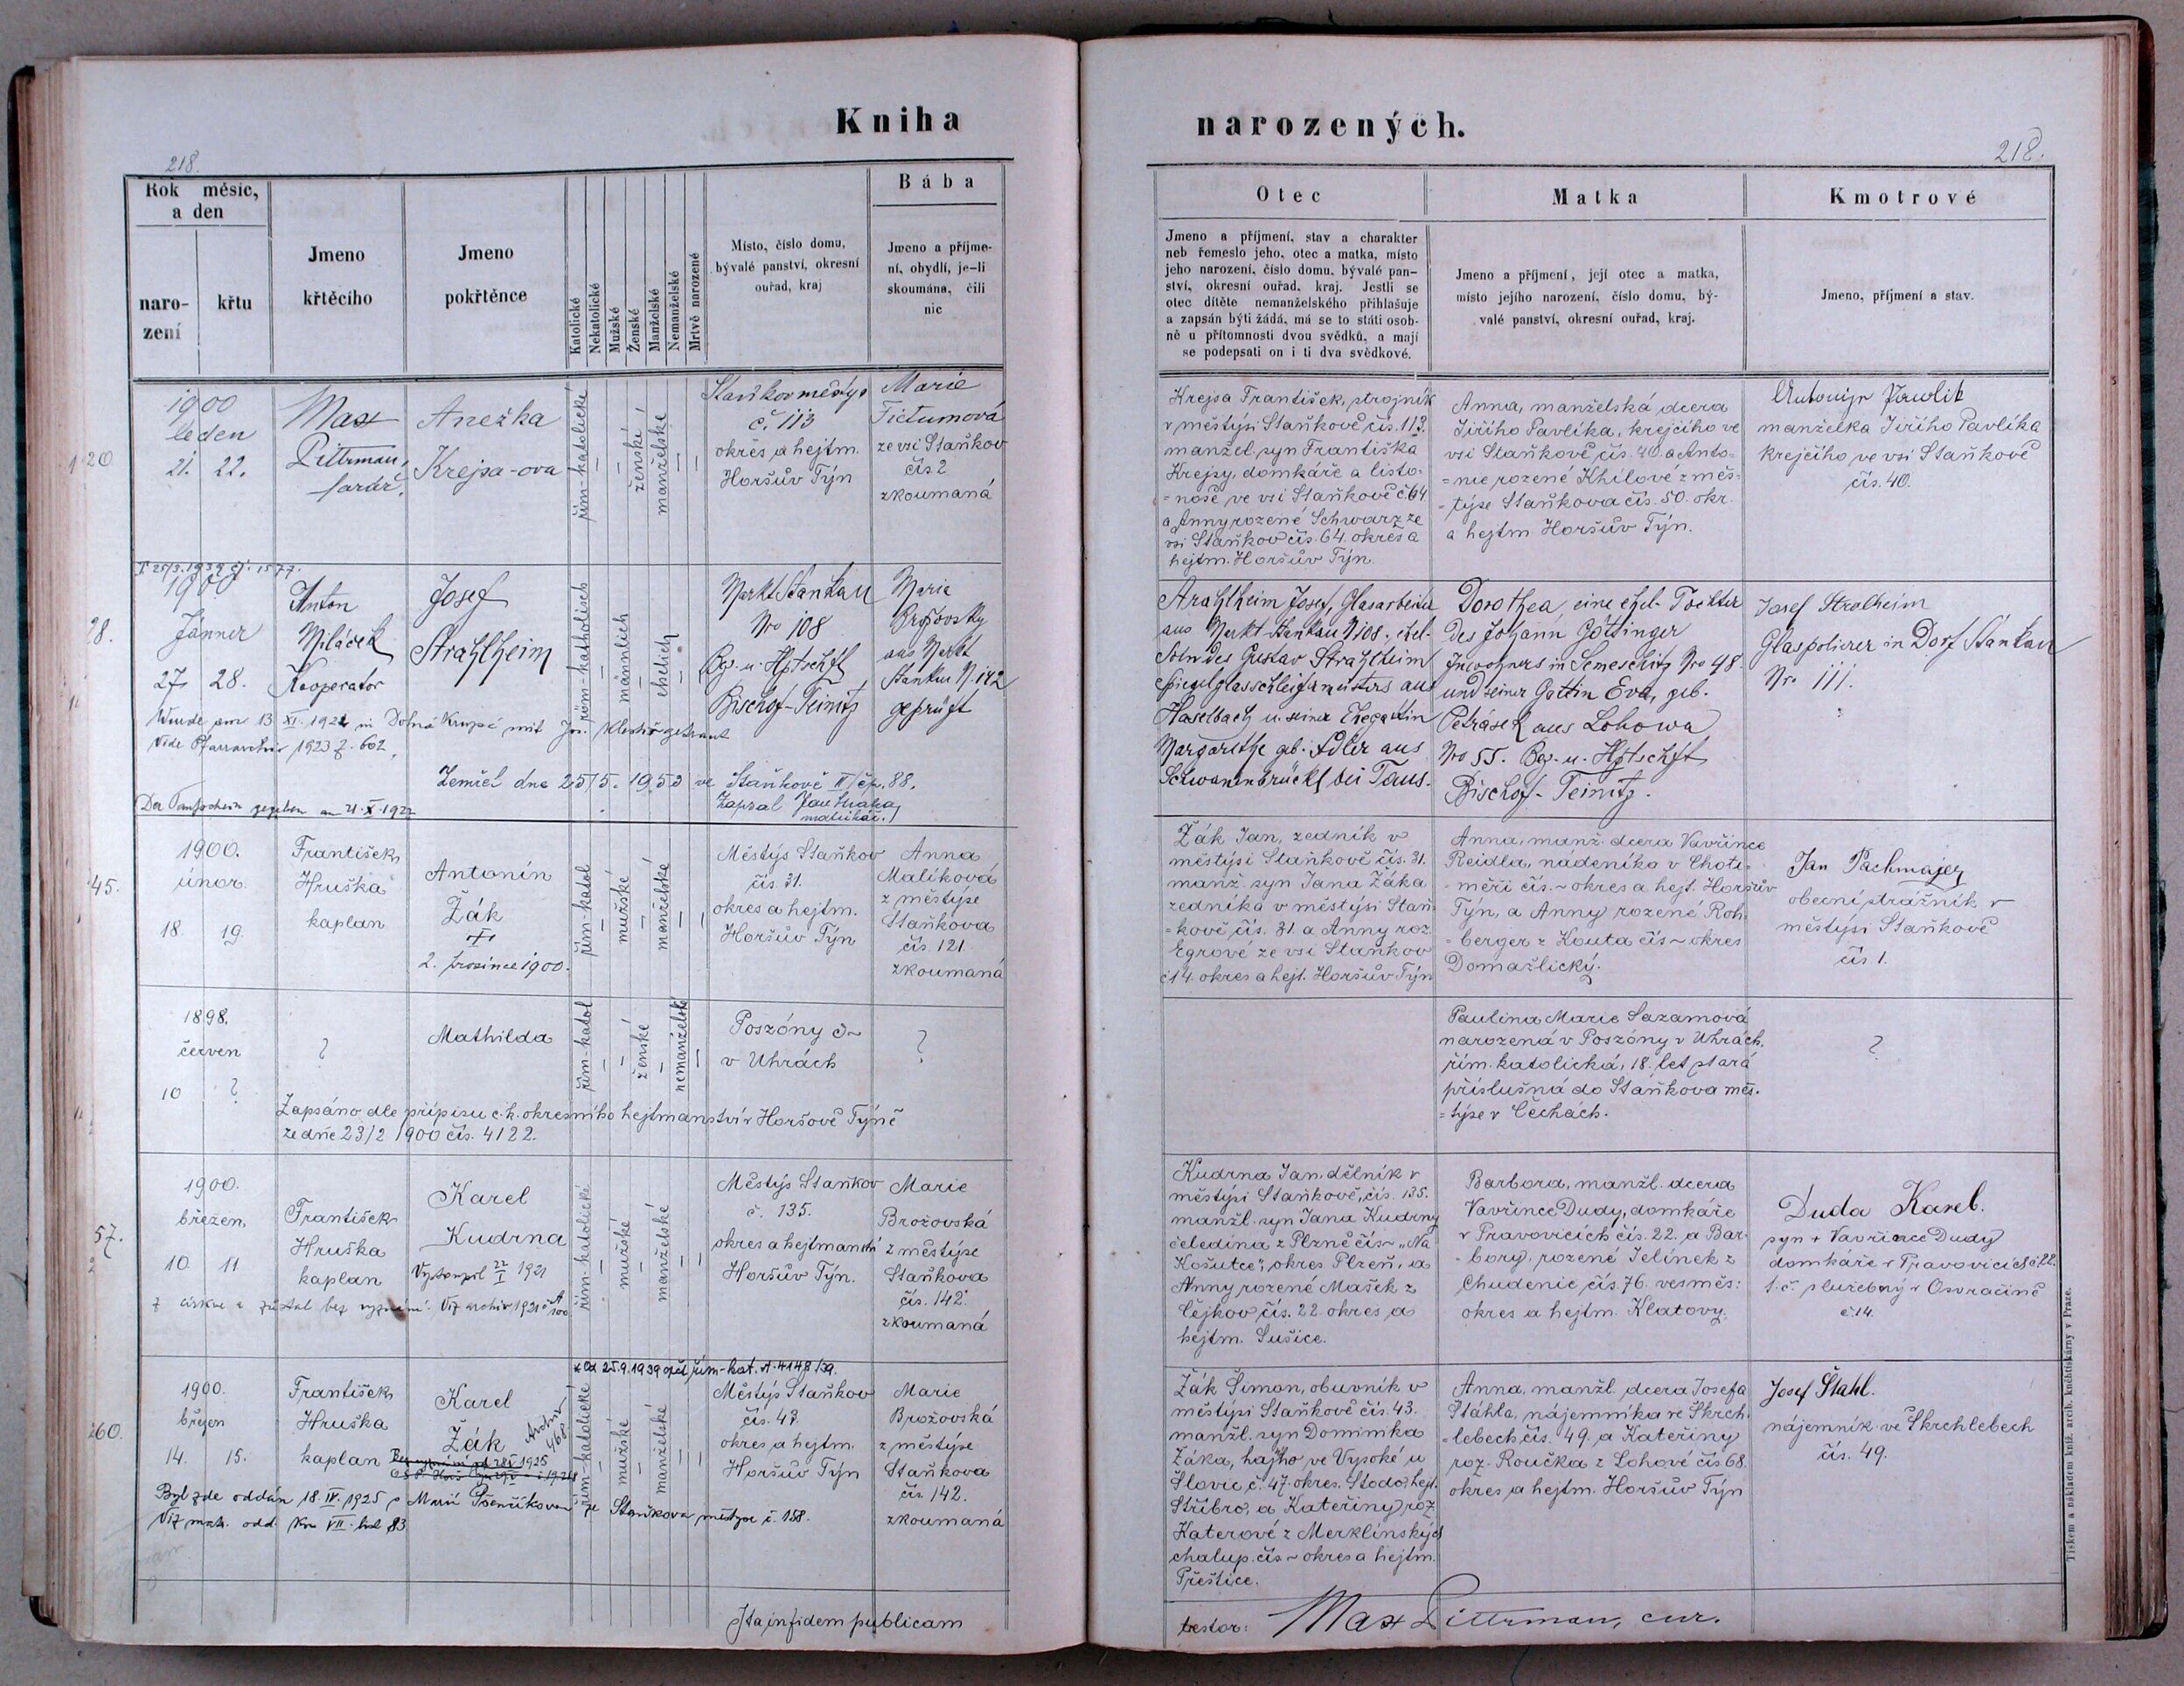 Kniha
narozených.
218.
218.
Rok měsíc,
a den
naro-
zení
křtu
Jmeno
křtěcího
Jmeno
pokřtěnce
Katolické
Nekatolické
Mužské
Ženské
Manželské
Nemanželské
Mrtvě narozené
Místo, číslo domu,
bývalé panství, okresní
ouřad, kraj
Bába
Jmeno a příjme-
ní, obydlí, je-li
skoumána, čili
nic
Otec
Jmeno a příjmení, stav a charakter
neb řemeslo jeho, otec a matka, místo
jeho narození, číslo domu, bývalé pan-
ství, okresní ouřad, kraj. Jestli se
otec dítěte nemanželského přihlašuje
a zapsán býti žádá, má se to státi osob-
ně u přítomnosti dvou svědků, a mají
se podepsati on i ti dva svědkové.
Matka
Jmeno a příjmení, její otec a matka,
místo jejího narození, číslo domu, bý-
valé panství, okresní ouřad, kraj.
Kmotrové
Jmeno, příjmení a stav.
1900
leden
21. 22.
Max
Pittrman,
farář.
Anežka
Krejsa-ova
řím-katolické
ženské
manželské
Staňkov městys
č. 113
okres a hejtm.
Horšův Týn
Marie
Tictumová
ze vsi Staňkov
čís. 2
zkoumaná
Krejsa František, strojník
v městysi Staňkově čís. 113.
manžel. syn Františka
Krejsy, domkáře a listo-
=noše ve vsi Staňkově č. 64
a Anny rozené Schwarz ze
vsi Staňkov čís. 64. okres a
hejtm. Horšův Týn.
Anna, manželská dcera
Jiřího Pavlíka, krejčího ve
vsi Staňkově čís. 40. a Anto-
=nie rozené Khilové z měs-
=týse Staňkova čís. 50. okr.
a hejtm. Horšův Týn.
manželka Jiřího Pavlíka
krejčího ve vsi Staňkově
čís. 40.
28.
1900
Jänner
27 28.
Anton
Miláček
Kooperator
Josef
Strahlheim
röm-katholisch
männlich
ehelich
Markt Stankau
Nro 108
Bez. u. Hptschft
Bischof-Teinitz
Maria
Brožovsky
aus Markt
Stankau N. 142
geprüft
Strahlheim Josef, Glasarbeiter
aus Markt Stankau N 108. ehel.
Sohn des Gustav Strahlheim
Spiegelglasschleifermeisters aus
Haselbach u. seiner Ehegattin
Margarethe geb. Adler aus
Schwanenbrückl bei Taus.
Dorothea, eine ehel. Tochter
des Johann Göttinger
Inwohners in Semeschitz Nro 48.
und seiner Gattin Eva, geb.
Petrásek aus Lohowa
Nro 55. Bez. u. Hptschft
Bischof-Teinitz.
Josef Stralheim
Glaspolierer in Dorf Stankau
Nro 111.
Wurde am 13 XI. 1922 in Dolná Krupá mit Jos. getraut
Vide Pfarrarchiv 1923 Z. 602
Zemřel dne 25/5. 1953 ve Staňkově II/čp. 88.
Zapsal Jan
matrikář.
Der Taufschein gegeben am 21. X. 1922
45.
1900.
únor.
18. 19.
František
Hruška
kaplan
Antonín
Žák
2. prosince 1900.
řím-katol
mužské
manželské
Městýs Staňkov
čís. 31.
okres a hejtm.
Horšův Týn
Anna
Malíková
z městýse
Staňkova
čís 121.
zkoumaná
Žák Jan, zedník v
městýsi Staňkově čís. 31.
manž. syn Jana Žáka
zedníka v městýsi Staň-
=kově čís. 31. a Anny roz.
Egrové ze vsi Staňkov
č 14. okres a hejt. Horšův Týn
Anna, manž. dcera Vavřince
Reidla, nádeníka v Choti-
=měři čís. ~ okres a hejt. Horšův
Týn, a Anny rozené Roh-
=berger z Kouta čís ~ okres
Domažlický.
Jan Pachmajer
obecní strážník v
městýsi Staňkově
čís 1.
1898.
červen
10 ?
?
Mathilda
řím-katol
ženské
nemanželské
Poszóny
v Uhrách
?
Paulina Marie Sazamová
narozená v Poszóny v Uhrách.
řím. katolická, 18. let stará
příslušná do Staňkova měs.
=týse v Čechách.
?
Zapsáno dle přípisu c. k. okresního hejtmanství v Horšově Týně
ze dne 23/2 1900 čís. 4122.
57.
1900.
březen,
10 11
František
Hruška
kaplan
Karel
Kudrna
Vystoupil 22/I 1921
z církve a zůstal bez vyznání. Viz archiv 1921
řím-katolické
mužské
manželské
Městýs Staňkov
č. 135.
okres a hejtmanství
Horšův Týn.
Marie
Brožovská
z městýse
Staňkova
čís. 142.
zkoumaná
Kudrna Jan, dělník v
městýsi Staňkově, čís. 135.
manžl. syn Jana Kudrny
čeledína z Plzně čís ~ „Na
Košutce", okres Plzeň, a
Anny rozené Mašek z
Čejkov čís. 22. okres a
hejtm. Sušice.
Barbora, manžl. dcera
Vavřince Dudy, domkáře
v Pravovicích čís. 22. a Bar-
=bory, rozené Jelínek z
Chudenic čís. 76. vesměs:
okres a hejtm. Klatovy.
Duda Karel.
syn + Vavřince Dudy
domkáře v Pravovicích č. 22.
t. č. služebný v Osvračíně
č 14.
260.
* Od 25.9.1939 opět řím-kat. 4148/39.
1900.
březen
14. 15.
František
Hruška
kaplan
Karel
Žák
řím-katolické
mužské
manželské
Městýs Staňkov
čís. 43.
okres a hejtm.
Horšův Týn
Marie
Brožovská
z městýse
Staňkova
čís. 142.
zkoumaná
Žák Šimon, obuvník v
městýsi Staňkově čís. 43.
manžl. syn Dominika
Žáka, hajného ve Vysoké u
Slovic č. 47. okres. Stodo, hejt.
Stříbro, a Kateřiny roz.
Katerové z Merklínských
chalup. čís ~ okres a hejtm.
Přeštice.
Anna, manžl. dcera Josefa
Štáhla, nájemníka ve Skrch-
=lebech čís. 49. a Kateřiny
roz. Roučka z Lohové čís 68.
okres a hejtm. Horšův Týn
Josef Štahl.
nájemník ve Skrchlebech
čís. 49.
Byl zde oddán 18. IV. 1925 s Marií ze Staňkova městyse č. 158.
Viz matr. odd. Kn VII. fol 83
Ita in fidem publicam
testor: Max Pittrman, cur.
Tiskem a nákladem kníž. arcib. knihtiskárny v Praze.